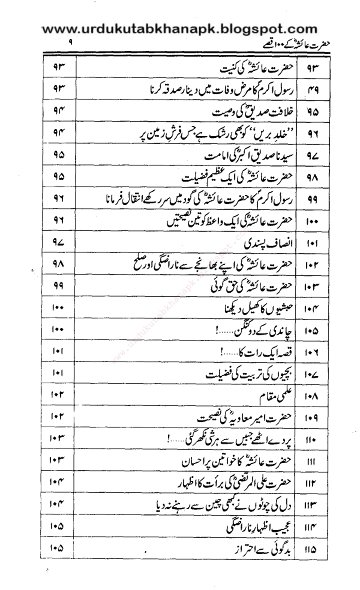 www.urdukutabkhanapk.blogspot.com
حضرت عائشہؓ کے ۱۰۰ قصے ۹
۹۳ حضرت عائشہؓ کی کنیت ۹۳
۴۹ رسول اکرمؐ کا مرض وفات میں دینار صدقہ کرنا ۹۳
۹۵ خلافت صدیقؓ کی وصیت ۹۴
۹۶ ”خلد بریں“ کو بھی رشک ہے جس فرشِ زمین پر ۹۴
۹۷ سیدنا صدیق اکبرؓ کی امامت ۹۵
۹۸ حضرت عائشہؓ کی ایک عظیم فضیلت ۹۵
۹۹ رسول اکرمؐ کا حضرت عائشہؓ کی گود میں سر رکھے انتقال فرمانا ۹۶
۱۰۰ حضرت عائشہؓ کی ایک واعظ کو تین نصیحتیں ۹۶
۱۰۱ انصاف پسندی ۹۷
۱۰۲ حضرت عائشہؓ کی اپنے بھانجے سے ناراضگی اور صلح ۹۸
۱۰۳ حضرت عائشہؓ کی حق گوئی ۹۹
۱۰۴ حبشیوں کا کھیل دیکھنا ۱۰۰
۱۰۵ چاندی کے دو کنگن.....! ۱۰۰
۱۰۶ قصہ ایک رات کا.....! ۱۰۱
۱۰۷ بچیوں کی تربیت کی فضیلت ۱۰۱
۱۰۸ علمی مقام ۱۰۲
۱۰۹ حضرت امیر معاویہؓ کی نصیحت ۱۰۲
۱۱۰ پردے اٹھے جبیں سے ہر شی نکھر گئی.....! ۱۰۳
۱۱۱ حضرت عائشہؓ کا خواتین پر احسان ۱۰۳
۱۱۲ حضرت علی المرتضیٰؓ کی برأت کا اظہار ۱۰۴
۱۱۳ دل کی چوٹوں نے کبھی چین سے رہنے نہ دیا ۱۰۴
۱۱۴ عجیب اظہار ناراضگی ۱۰۵
۱۱۵ بدگوئی سے احتراز ۱۰۵